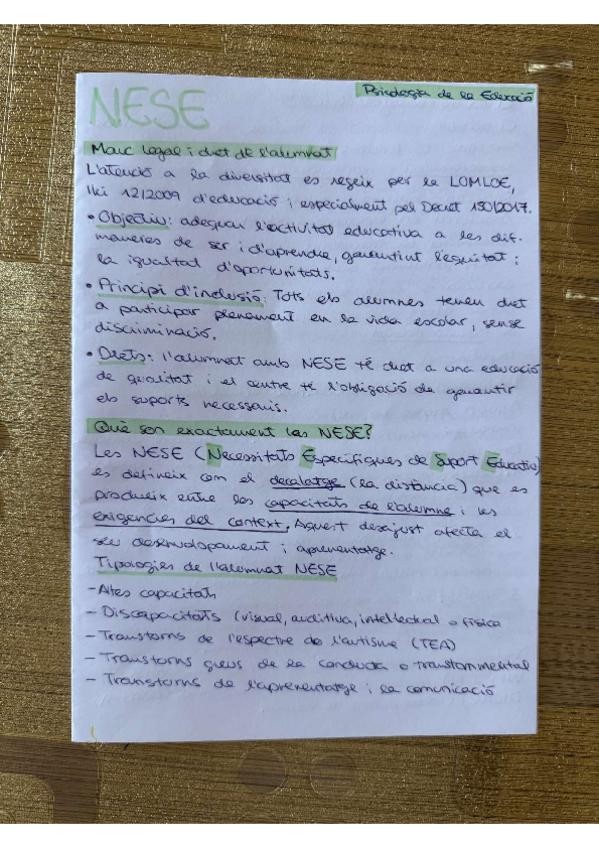 Psicologia de la Educació
NESE
Marc legal i dret de l'alumnat
L'atenció a la diversitat es regeix per la LOMLOE,
llei 12/2009 d'educació i especialment pel Decret 150/2017.
• Objectiu: adequar l'activitat educativa a les dif.
maneres de ser i d'aprendre, garantint l'equitat i
la igualtat d'oportunitats.
• Principi d'inclusió: Tots els alumnes tenen dret
a participar plenament en la vida escolar, sense
discriminació.
• Drets: l'alumnat amb NESE té dret a una educació
de qualitat i el centre té l'obligació de garantir
els suports necessaris.
Què son exactament las NESE?
Les NESE (Necessitats Específiques de Suport Educatiu)
es defineix com el decalatge (la distància) que es
produeix entre les capacitats de l'alumne i les
exigències del context. Aquest desajust afecta el
seu desenvolopament i aprenentatge.
Tipologies de l'alumnat NESE
- Altes capacitats
- Discapacitats (visual, auditiva, intel·lectual o física
- Transtorns de l'espectre de l'autisme (TEA)
- Transtorns greus de la conducta o transtorn mental
- Transtorns de l'aprenentatge i la comunicació